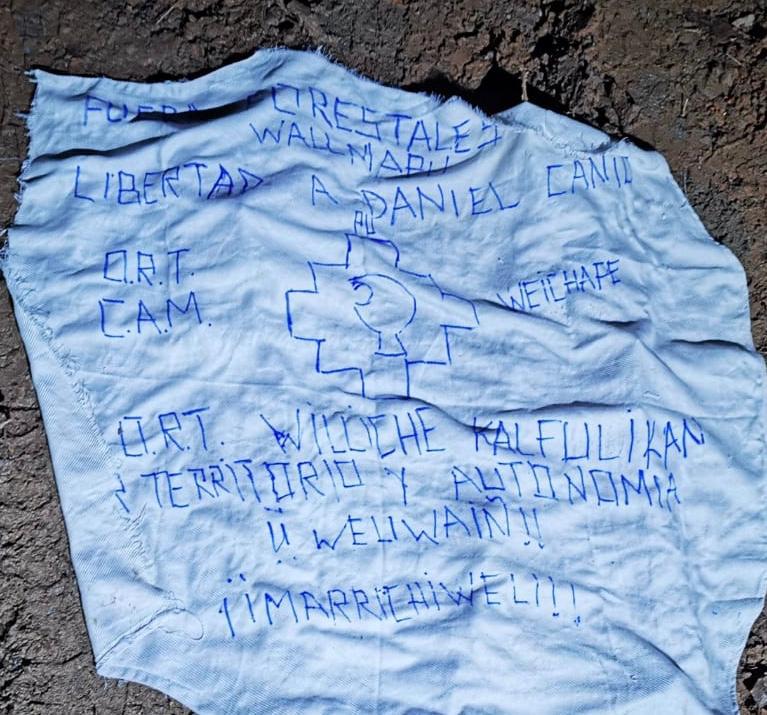 FUERA FORESTALES
WALLMAPU
LIBERTAD A DANIEL CANIO
PU
O.R.T.
WEICHAFE
C.A.M.
O.R.T. WILLICHE KALFULIKAN
¡ TERRITORIO Y AUTONOMIA
¡¡ WEUWAIÑ!!
¡¡MARRICHIWEU!!!